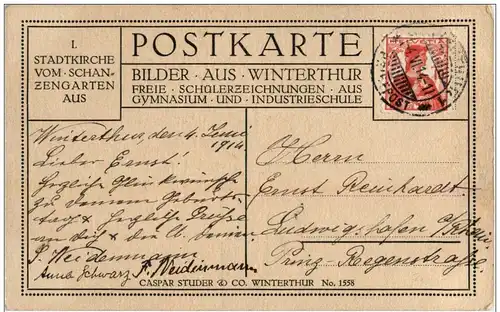 I.
STADTKIRCHE
VOM · SCHAN-
ZENGARTEN
AUS
POSTKARTE
BILDER · AUS · WINTERTHUR
FREIE · SCHÜLERZEICHNUNGEN · AUS
GYMNASIUM · UND · INDUSTRIESCHULE
Winterthur, den 4. Juni
1914
Lieber Ernst!
Herzliche Glückwünsche
zu deinem Geburts-
tag & herzliche Grüsse
an dich & die
S. Weidenmann
Anna Schwarz F. Weidenmann
Herrn
Ernst Reinhardt
Ludwigshafen a/Rhein
Prinz-Regenstraße.
CASPAR STUDER & CO. WINTERTHUR No. 1558